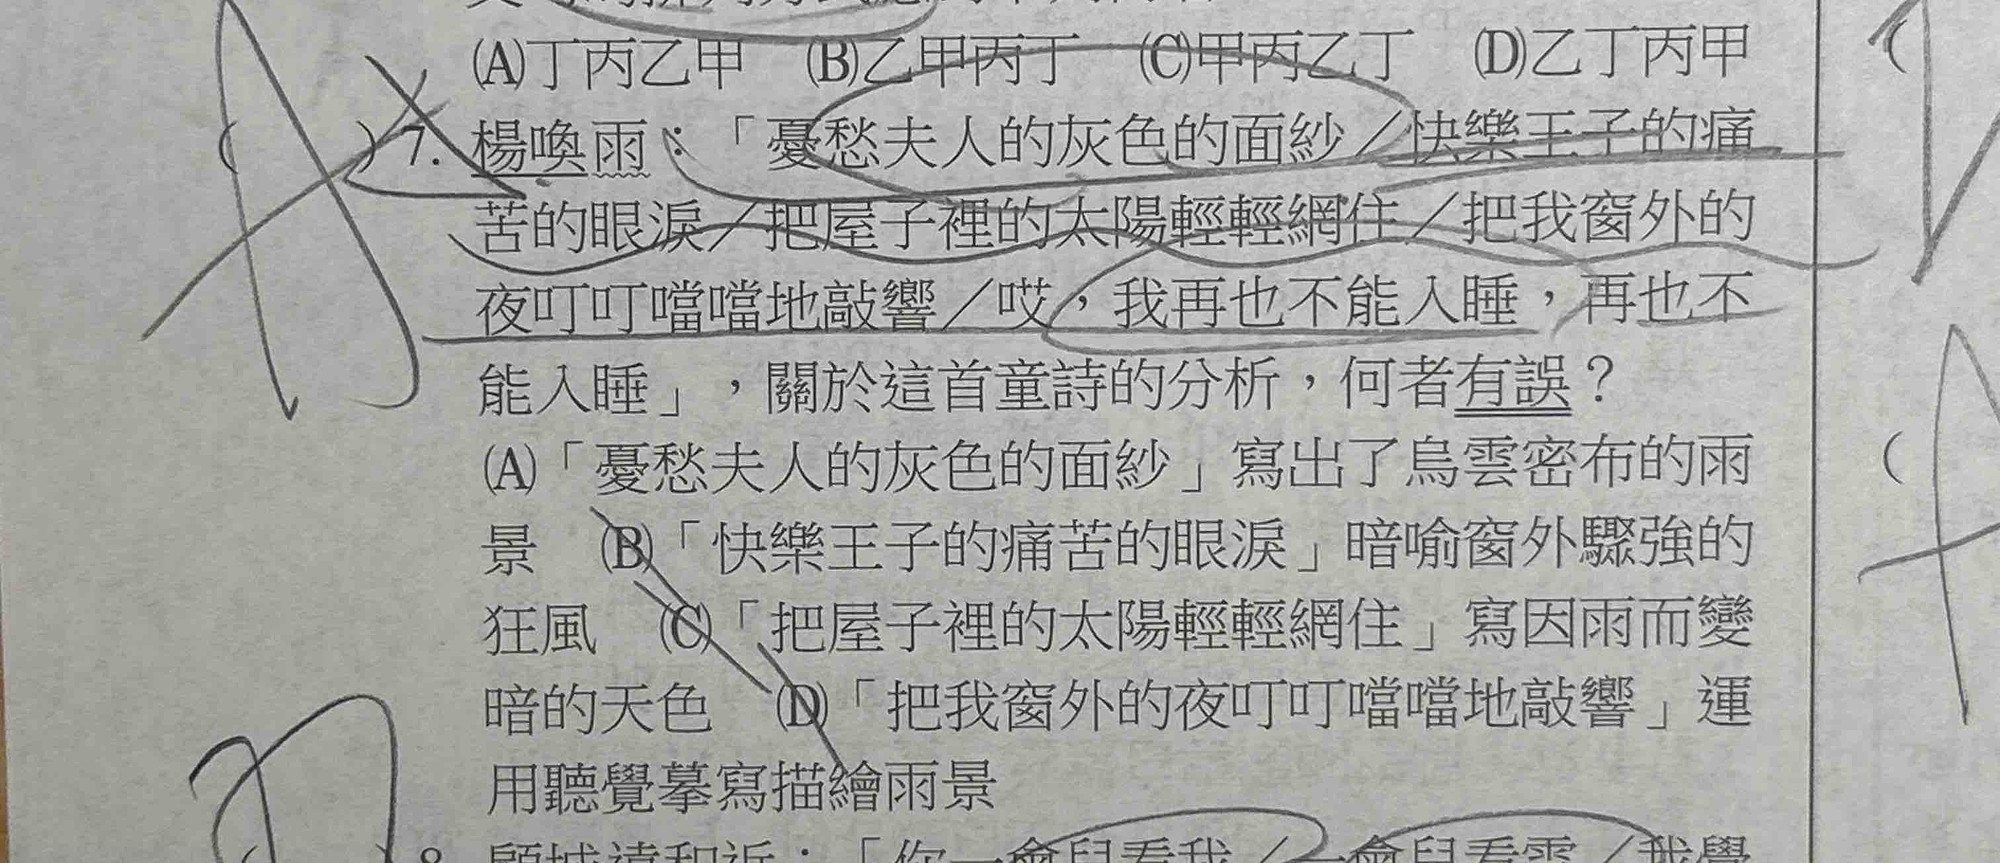 (A)丁丙乙甲　(B)乙甲丙丁　(C)甲丙乙丁　(D)乙丁丙甲
(　)7. 楊喚雨：「憂愁夫人的灰色的面紗／快樂王子的痛
苦的眼淚／把屋子裡的太陽輕輕網住／把我窗外的
夜叮叮噹噹地敲響／哎，我再也不能入睡，再也不
能入睡」，關於這首童詩的分析，何者有誤？
(A)「憂愁夫人的灰色的面紗」寫出了烏雲密布的雨
景　(B)「快樂王子的痛苦的眼淚」暗喻窗外驟強的
狂風　(C)「把屋子裡的太陽輕輕網住」寫因雨而變
暗的天色　(D)「把我窗外的夜叮叮噹噹地敲響」運
用聽覺摹寫描繪雨景
8. 顧城遠和近：「你一會兒看我／一會兒看雲／我覺